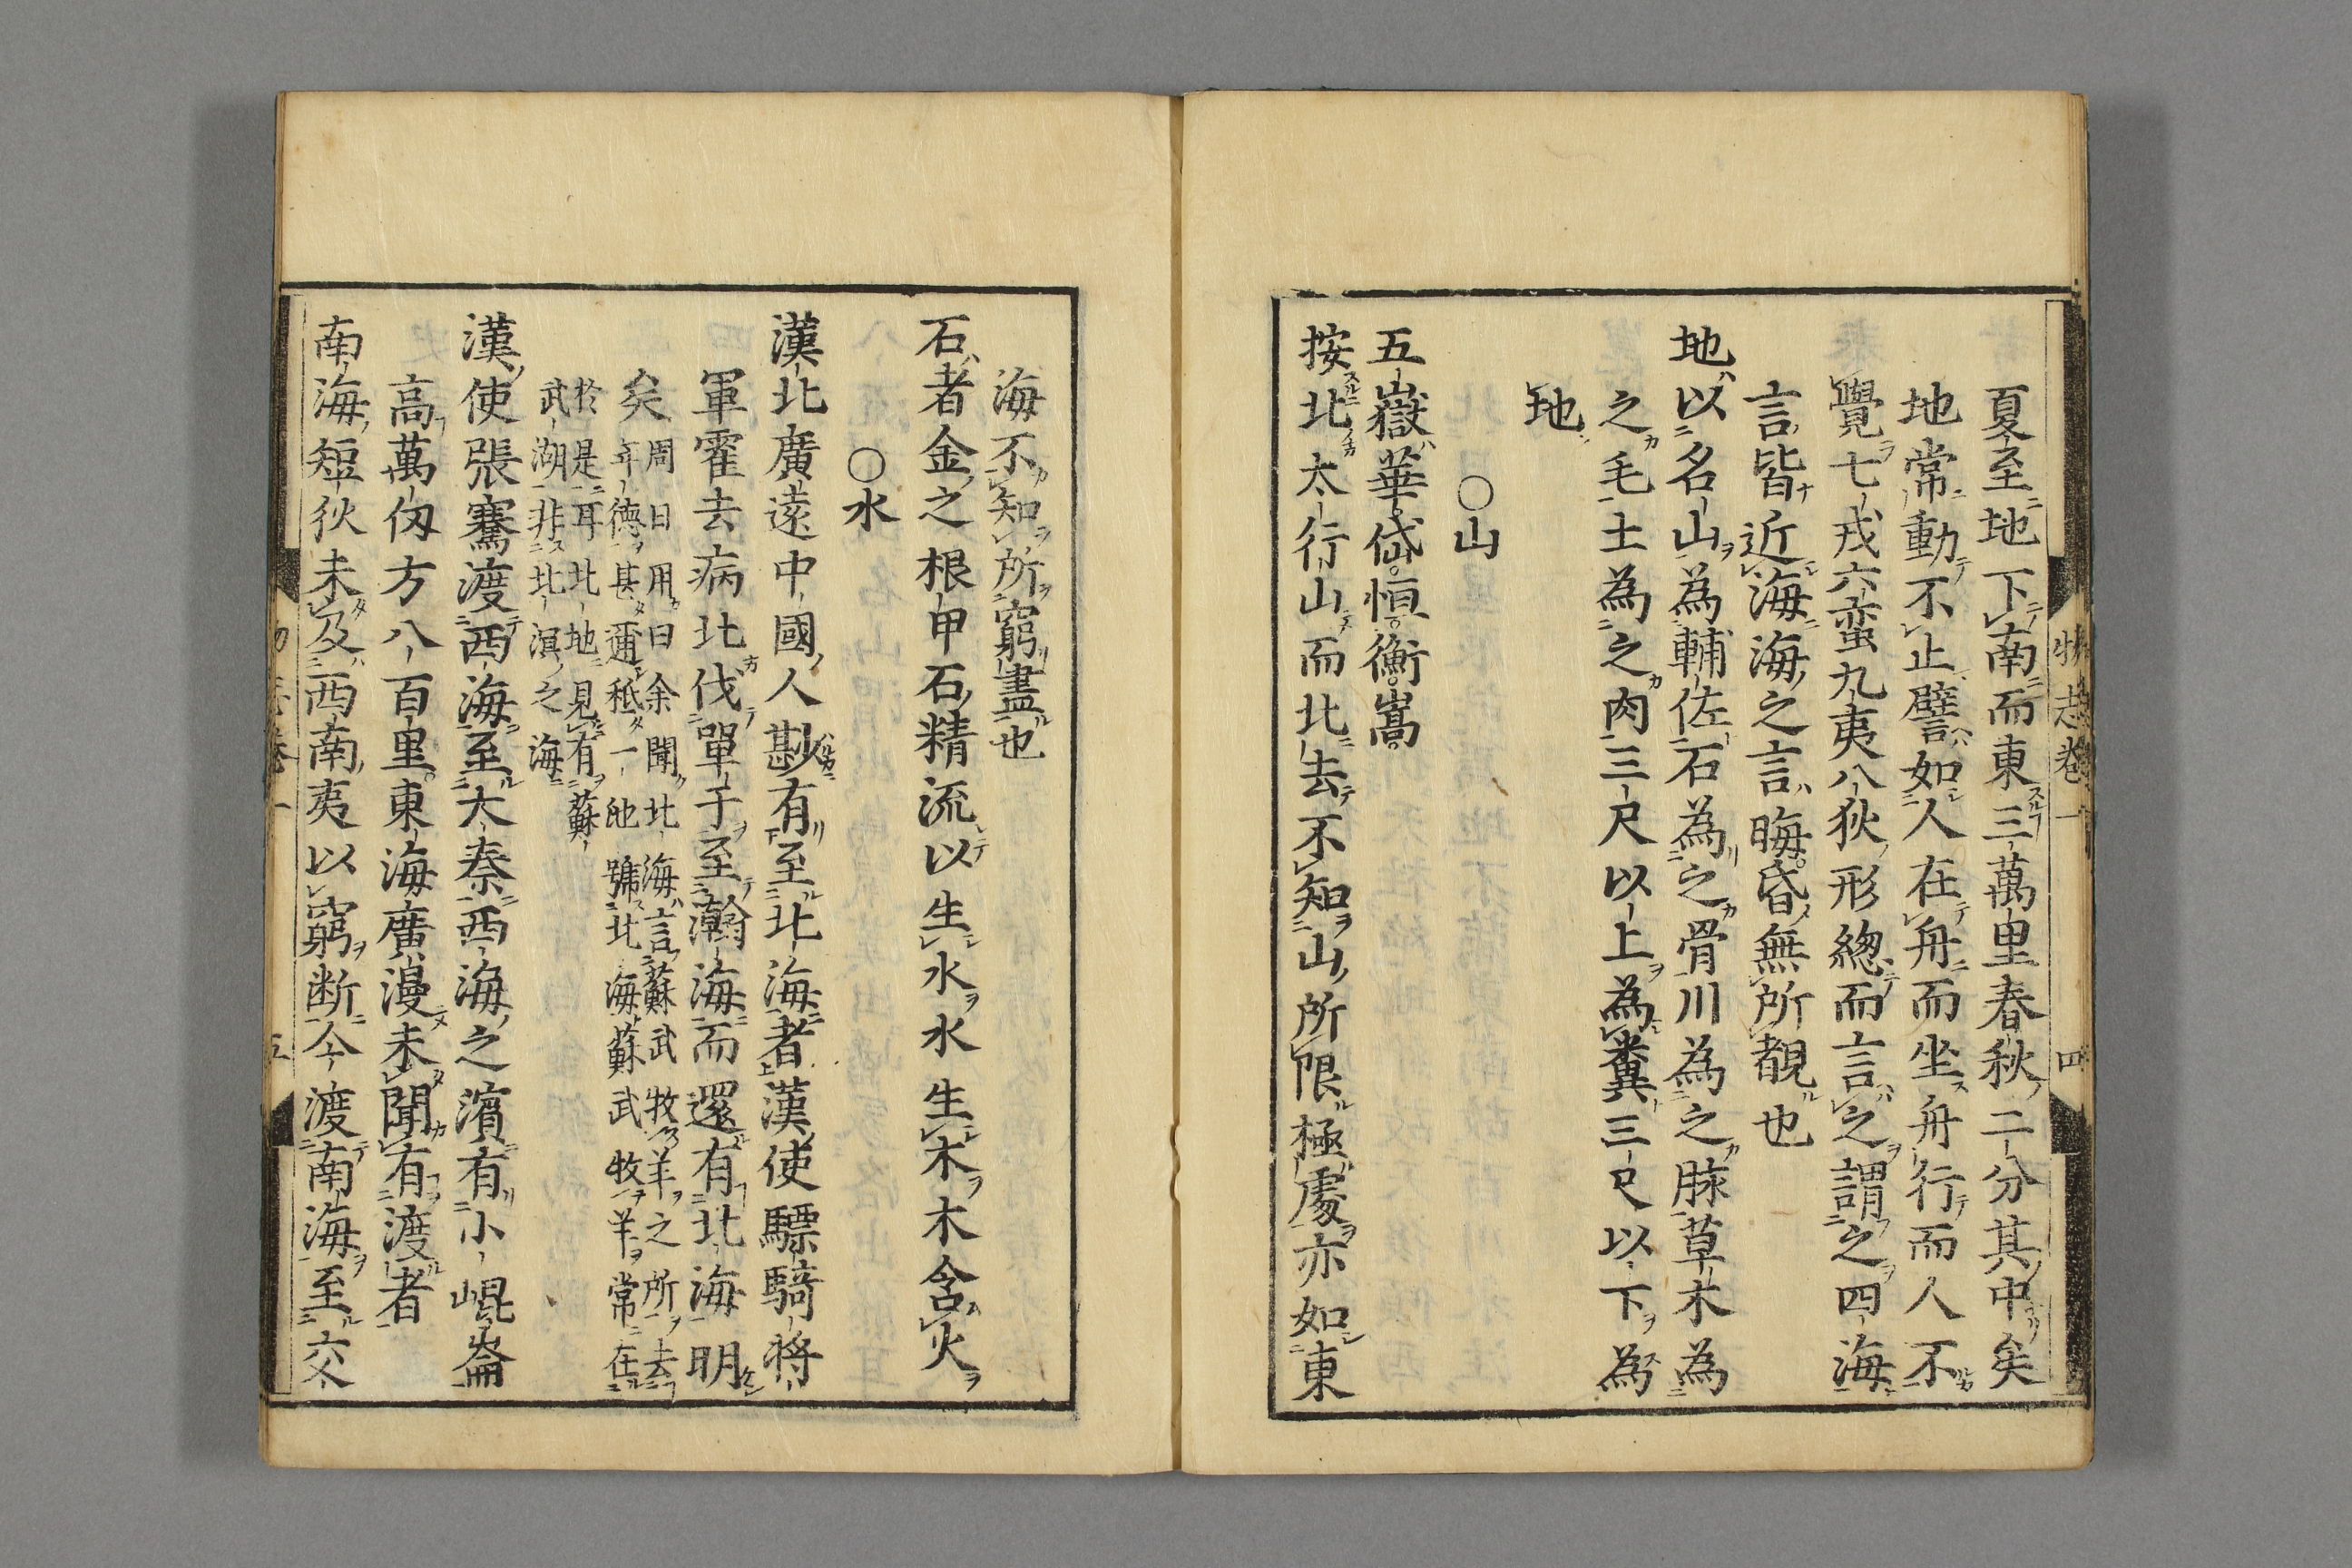 夏至地下南而東三萬里春秋二分其中矣
地常動不止譬如人在舟而坐舟行而人不
覺七戎六蛮九夷八狄形緫而言之謂之四海
言皆近海海之言晦昏無所覩也
地以名山為輔佐石為之骨川為之脉草木為
之毛土為之肉三尺以上為糞三尺以下為
地
○山
五嶽華岱恒衡嵩
按北太行山而北去不知山所限極處亦如東
海不知所窮盡也
石者金之根甲石精流以生水水生木木含火
○水
漢北廣遠中國人尠有至北海者漢使驃騎将
軍霍去病北伐單于至瀚海而還有北海明
矣
周日用曰余聞北海言蘇武牧羊之所去
年德甚邇秪一池號北海蘇武牧羊常在
於是耳北地見有蘇
武湖非北溟之海
漢使張騫渡西海至大秦西海之濱有小崐崙
高萬仭方八百里東海廣漫未聞有渡者
南海短狄未及西南夷以窮断今渡南海至交
物志卷一
四
五